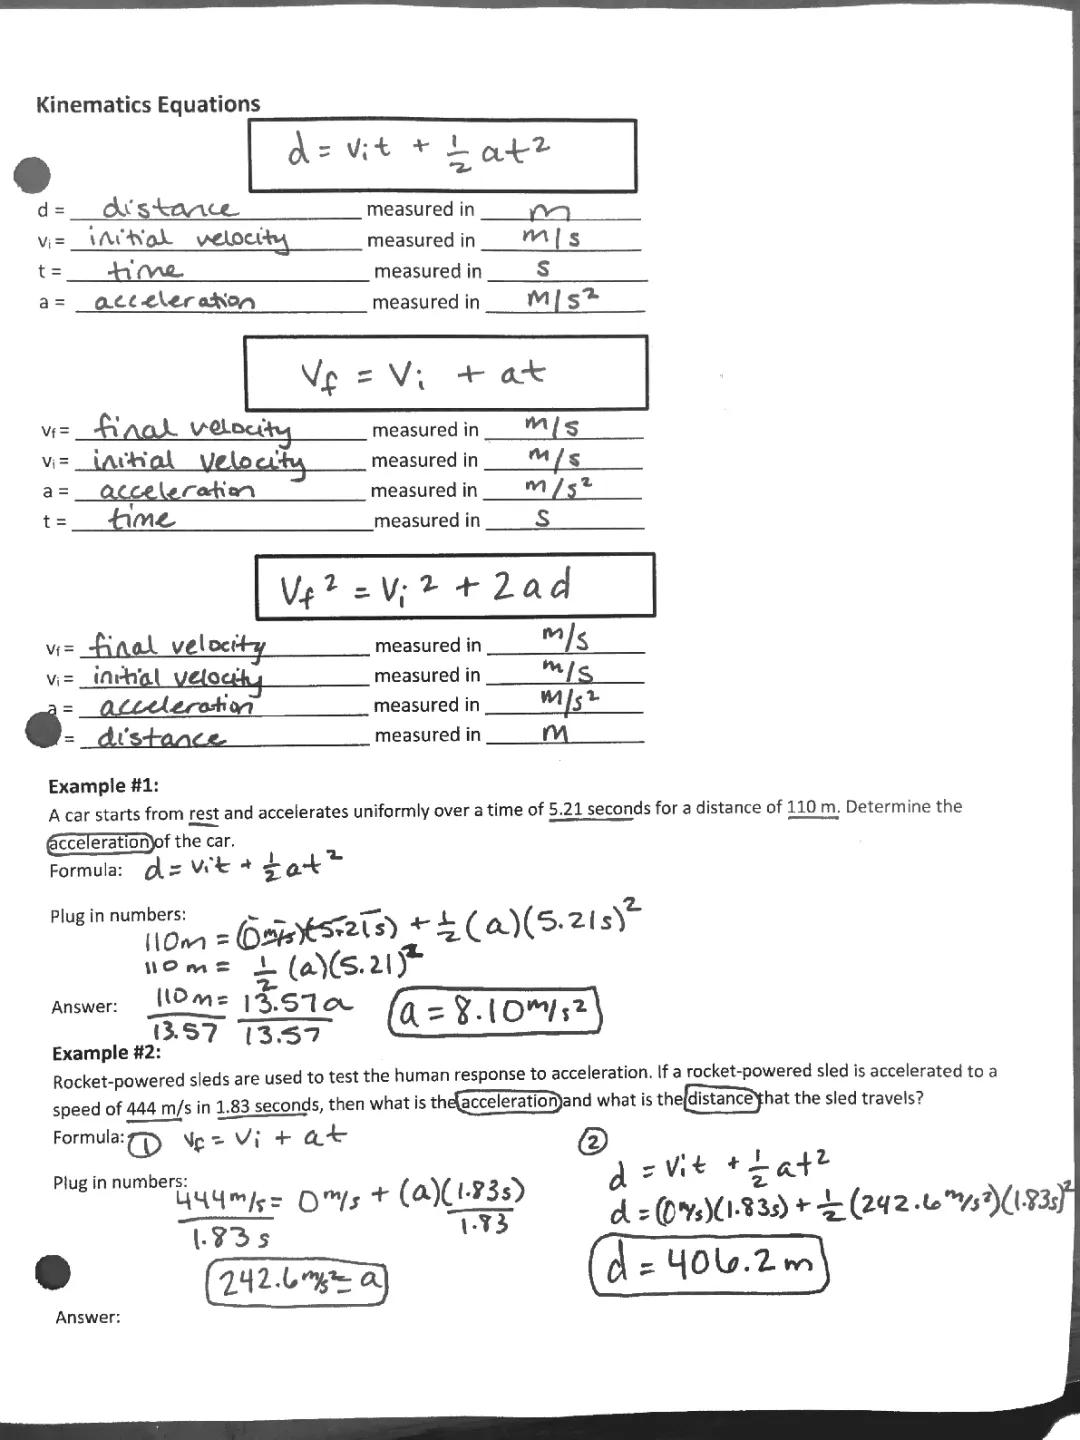 Kinematics Equations
d = vit + 1/2 at²
d = distance measured in m
vi = initial velocity measured in m/s
t = time measured in s
a = acceleration measured in m/s²
Vf = Vi + at
Vf = final velocity measured in m/s
Vi = initial velocity measured in m/s
a = acceleration measured in m/s²
t = time measured in s
Vf² = Vi² + 2ad
Vf = final velocity measured in m/s
Vi = initial velocity measured in m/s
a = acceleration measured in m/s²
= distance measured in m
Example #1:
A car starts from rest and accelerates uniformly over a time of 5.21 seconds for a distance of 110 m. Determine the
acceleration of the car.
Formula: d = vit + 1/2 at²
Plug in numbers:
110m = (0m/s)(5.21s) + 1/2 (a)(5.21s)²
110m = 1/2 (a)(5.21)²
Answer: 110m = 13.57a a = 8.10m/s²
13.57 13.57
Example #2:
Rocket-powered sleds are used to test the human response to acceleration. If a rocket-powered sled is accelerated to a
speed of 444 m/s in 1.83 seconds, then what is the acceleration and what is the distance that the sled travels?
Formula: ① Vf = Vi + at
Plug in numbers:
444m/s = 0m/s + (a)(1.83s)
1.83s 1.83
242.6m/s² = a
②
d = Vit + 1/2 at²
d = (0m/s)(1.83s) + 1/2 (242.6m/s²)(1.83s)²
d = 406.2m
Answer: